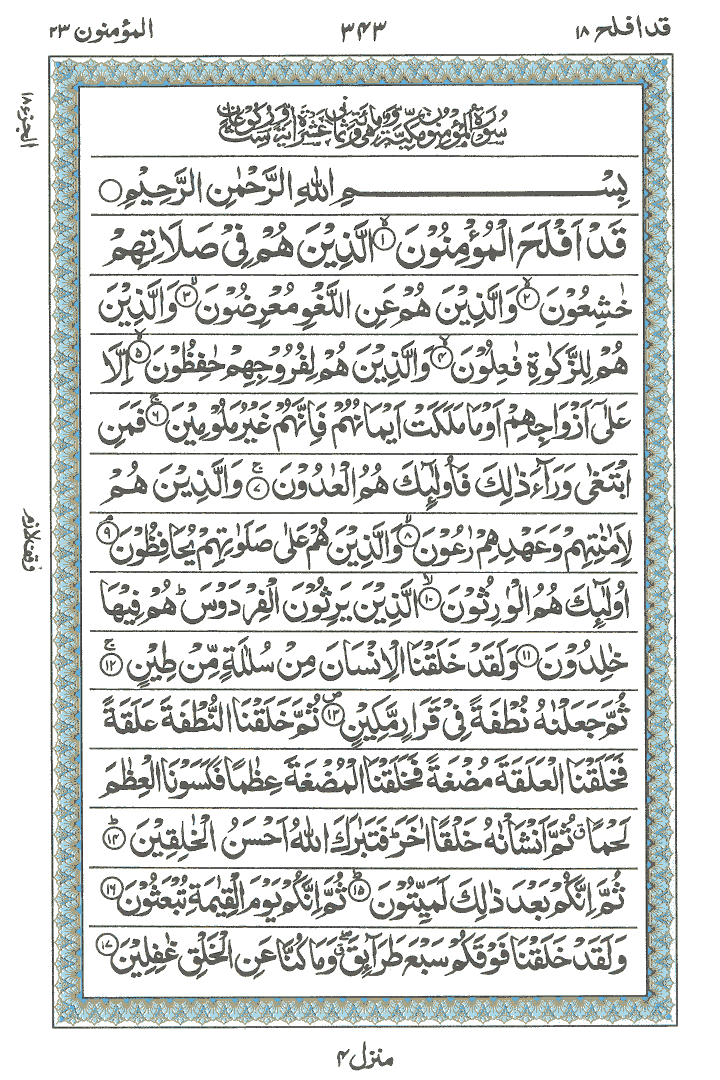 قد افلح ١٨
٣٤٣
المؤمنون ٢٣
الجزء ١٨
سورة المؤمنون مكية وهي مائة وثماني عشرة اية وست ركوعات
بِسْمِ اللهِ الرَّحْمٰنِ الرَّحِيْمِ ○
قَدْ اَفْلَحَ الْمُؤْمِنُوْنَ ۙ﴿١﴾ الَّذِيْنَ هُمْ فِيْ صَلَاتِهِمْ
خٰشِعُوْنَ ۙ﴿٢﴾ وَالَّذِيْنَ هُمْ عَنِ اللَّغْوِ مُعْرِضُوْنَ ۙ﴿٣﴾ وَالَّذِيْنَ
هُمْ لِلزَّكٰوةِ فٰعِلُوْنَ ۙ﴿٤﴾ وَالَّذِيْنَ هُمْ لِفُرُوْجِهِمْ حٰفِظُوْنَ ۙ﴿٥﴾ اِلَّا
عَلٰٓى اَزْوَاجِهِمْ اَوْ مَا مَلَكَتْ اَيْمَانُهُمْ فَاِنَّهُمْ غَيْرُ مَلُوْمِيْنَ ۚ﴿٦﴾ فَمَنِ
ابْتَغٰى وَرَآءَ ذٰلِكَ فَاُولٰٓئِكَ هُمُ الْعٰدُوْنَ ۚ﴿٧﴾ وَالَّذِيْنَ هُمْ
لِاَمٰنٰتِهِمْ وَعَهْدِهِمْ رٰعُوْنَ ۙ﴿٨﴾ وَالَّذِيْنَ هُمْ عَلٰى صَلَوٰتِهِمْ يُحَافِظُوْنَ ۘ﴿٩﴾
وقف لازم
اُولٰٓئِكَ هُمُ الْوٰرِثُوْنَ ۙ﴿١٠﴾ الَّذِيْنَ يَرِثُوْنَ الْفِرْدَوْسَ ؕ هُمْ فِيْهَا
خٰلِدُوْنَ ﴿١١﴾ وَلَقَدْ خَلَقْنَا الْاِنْسَانَ مِنْ سُلٰلَةٍ مِّنْ طِيْنٍ ۚ﴿١٢﴾
ثُمَّ جَعَلْنٰهُ نُطْفَةً فِيْ قَرَارٍ مَّكِيْنٍ ۪﴿١٣﴾ ثُمَّ خَلَقْنَا النُّطْفَةَ عَلَقَةً
فَخَلَقْنَا الْعَلَقَةَ مُضْغَةً فَخَلَقْنَا الْمُضْغَةَ عِظٰمًا فَكَسَوْنَا الْعِظٰمَ
لَحْمًا ۗ ثُمَّ اَنْشَاْنٰهُ خَلْقًا اٰخَرَ ؕ فَتَبٰرَكَ اللهُ اَحْسَنُ الْخٰلِقِيْنَ ؕ﴿١٤﴾
ثُمَّ اِنَّكُمْ بَعْدَ ذٰلِكَ لَمَيِّتُوْنَ ؕ﴿١٥﴾ ثُمَّ اِنَّكُمْ يَوْمَ الْقِيٰمَةِ تُبْعَثُوْنَ ﴿١٦﴾
وَلَقَدْ خَلَقْنَا فَوْقَكُمْ سَبْعَ طَرَآئِقَ ۖ وَمَا كُنَّا عَنِ الْخَلْقِ غٰفِلِيْنَ ﴿١٧﴾
منزل ٤